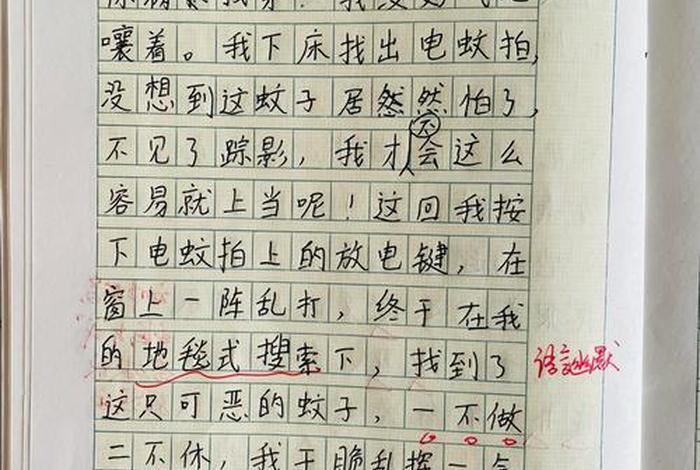 嚷着。我下床找出电蚊拍,
没想到这蚊子居然然怕了,
不见了踪影,我才不会这么
容易就上当呢!这回我按
下电蚊拍上的放电键,在
窗上一阵乱打,终于在我
的地毯式搜索下,找到了
语言幽默
这只可恶的蚊子,一不做
二不休,我干脆乱挥一气